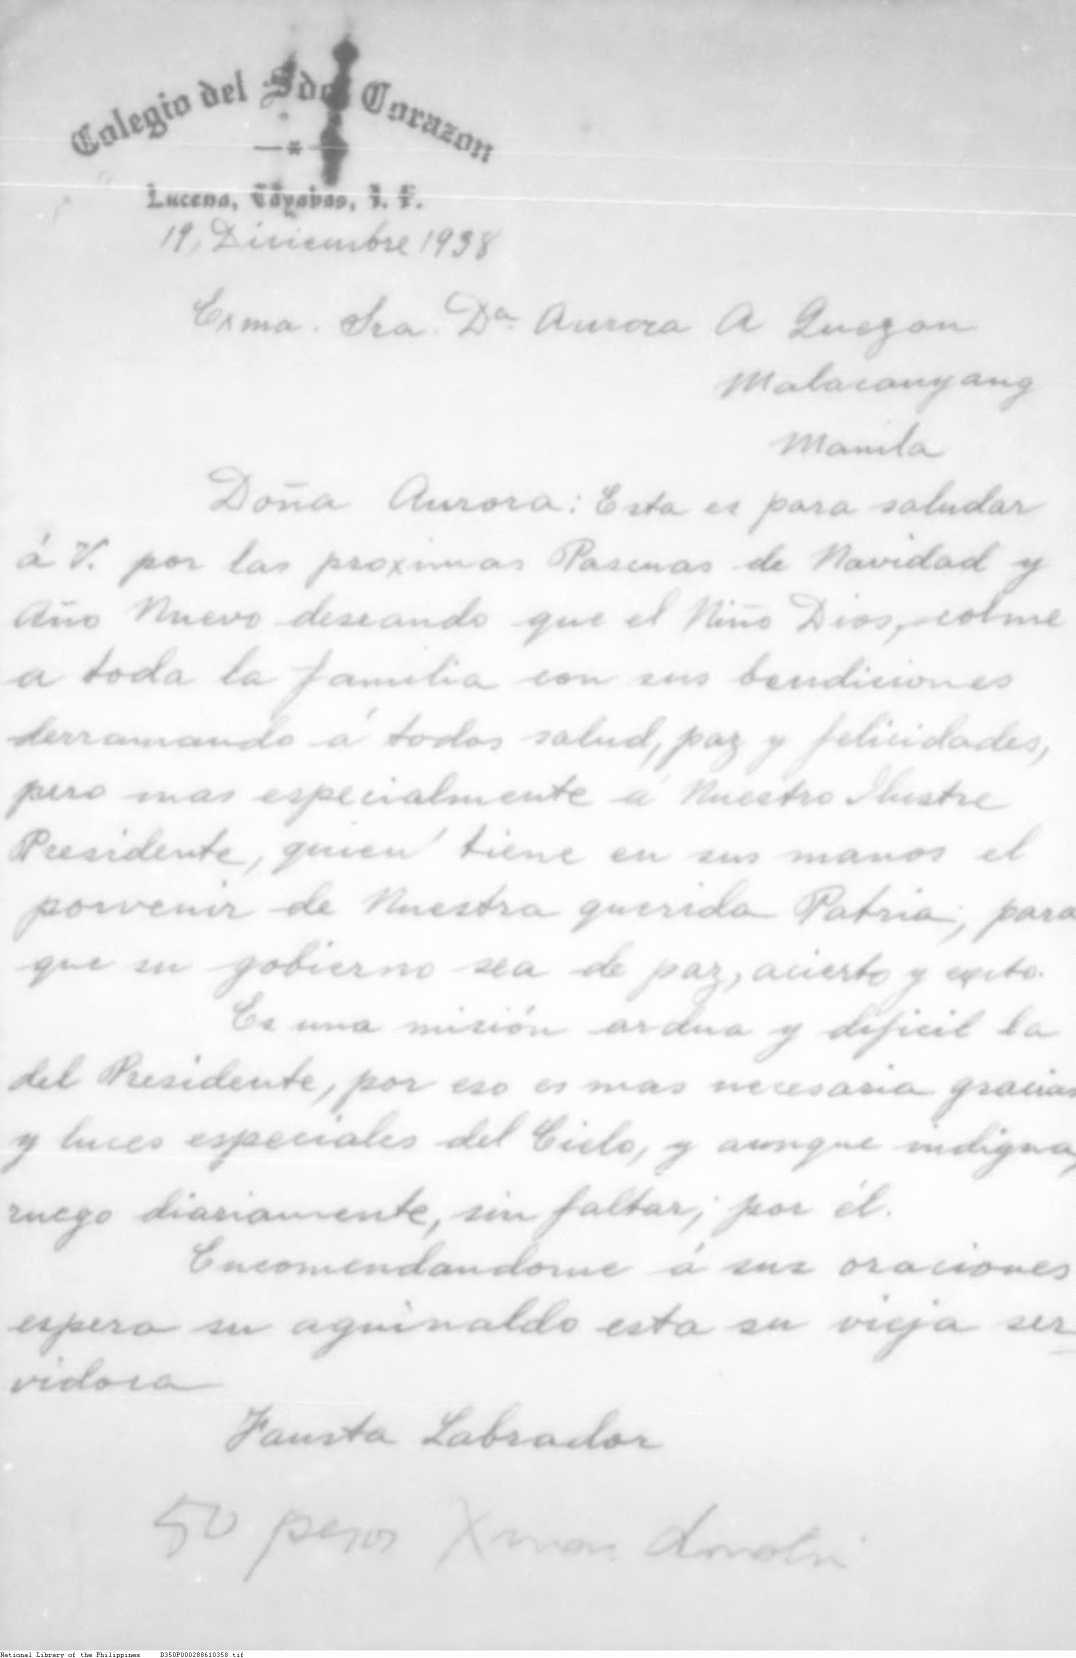 Colegio del Sdo Corazon
Lucena, Tayabas, I. F.
19, Diciembre 1938
Exma. Sra. Da. Aurora A Quezon
Malacanyang
Manila
Doña Aurora: Esta es para saludar
á V. por las proximas Pascuas de Navidad y
Año Nuevo deseando que el Niño Dios, colme
a toda la familia con sus bendiciones
derramando á todos salud, paz y felicidades,
pero mas especialmente á Nuestro Ilustre
Presidente, quien tiene en sus manos el
porvenir de Nuestra querida Patria, para
que su gobierno sea de paz, acierto y exito.
Es una misión ardua y dificil la
del Presidente, por eso es mas necesaria gracias
y luces especiales del Cielo, y aunque indigna,
ruego diariamente, sin faltar, por él.
Encomendandome á sus oraciones
espera su aguinaldo esta su vieja ser
vidora
Fausta Labrador
50 pesos Xmas
National Library of the Philippines D350P000288610358.tif